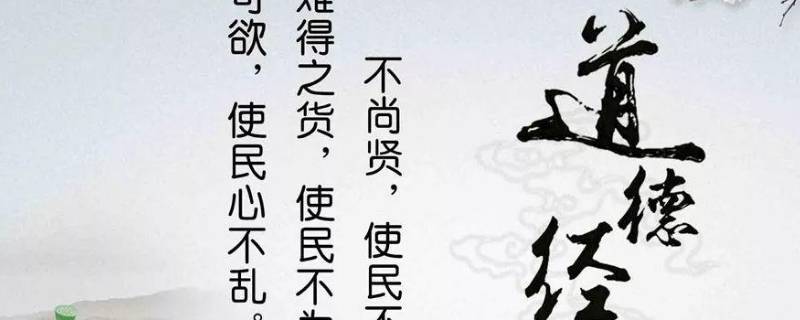 道德经
不尚贤，使民不
难得之货，使民不为
可欲，使民心不乱。